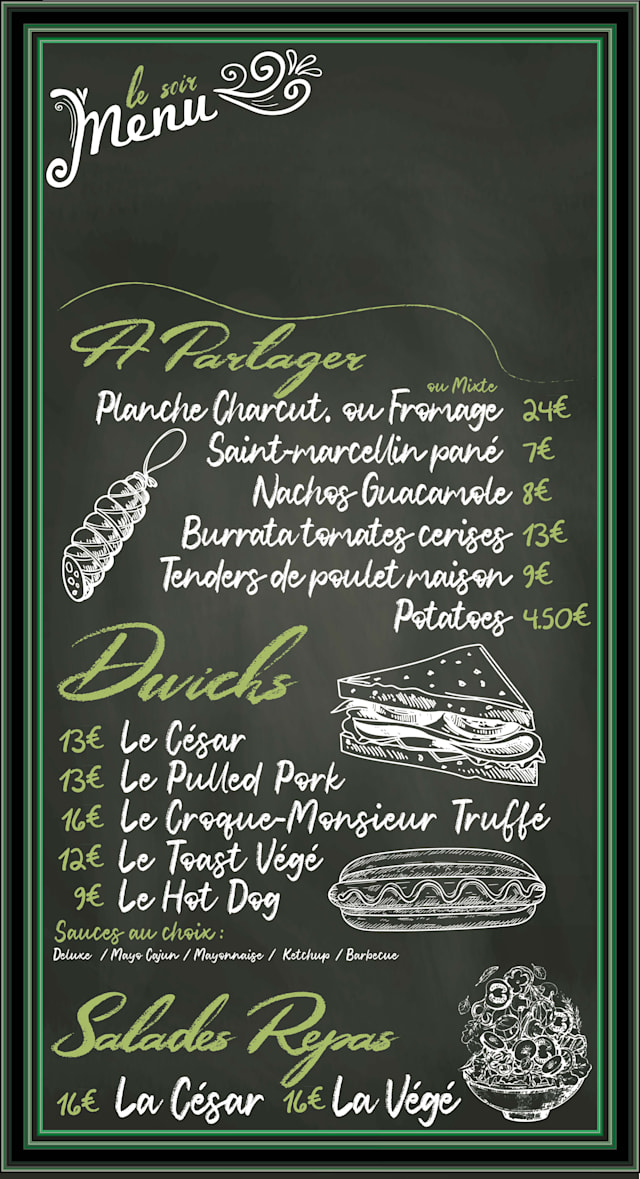 le soir
Menu
A Partager
ou Mixte
Planche Charcut. ou Fromage 24€
Saint-marcellin pané 7€
Nachos Guacamole 8€
Burrata tomates cerises 13€
Tenders de poulet maison 9€
Potatoes 4.50€
Dwichs
13€ Le César
13€ Le Pulled Pork
16€ Le Croque-Monsieur Truffé
12€ Le Toast Végé
9€ Le Hot Dog
Sauces au choix :
Deluxe / Mayo Cajun / Mayonnaise / Ketchup / Barbecue
Salades Repas
16€ La César 16€ La Végé